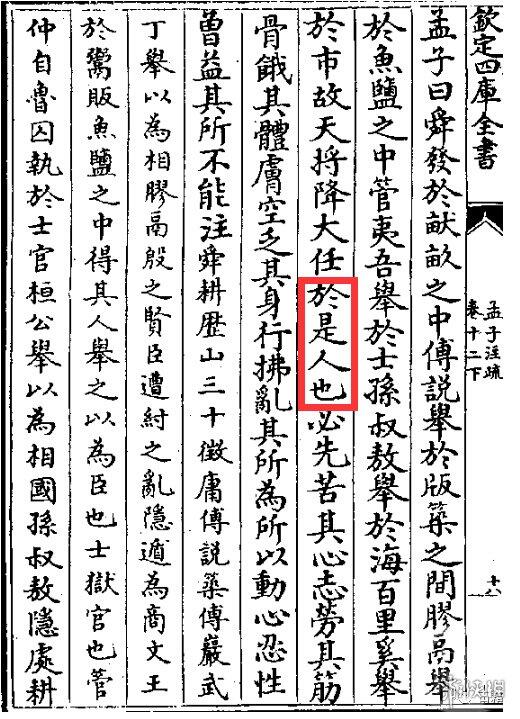 欽定四庫全書
孟子注疏
卷十二下
十六
孟子曰舜發於畎畝之中傅説舉於版築之間膠鬲舉
於魚鹽之中管夷吾舉於士孫叔敖舉於海百里奚舉
於市故天將降大任於是人也必先苦其心志勞其筋
骨餓其體膚空乏其身行拂亂其所為所以動心忍性
曾益其所不能注舜耕歷山三十徵庸傅説築傅巖武
丁舉以為相膠鬲殷之賢臣遭紂之亂隱遁為商文王
於鬻販魚鹽之中得其人舉之以為臣也士獄官也管
仲自魯囚執於士官桓公舉以為相國孫叔敖隱處耕